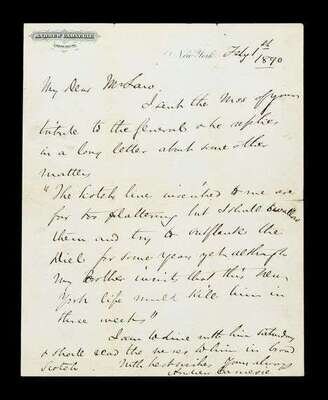 ANDREW CARNEGIE
New York Feby 1st
1890
My Dear Mr Law
I sent the Mss of your
tribute to the General who replies
in a long letter about some other
matters
"The Scotch lines inscribed to me are
far too flattering but I shall
them and try to outflank the
Diel for some years yet although
My brother insists that this New
York life would kill him in
three weeks"
I am to dine with him Saturday
& shall read the verses to him in broad
Scotch With best wishes Yours always
Andrew Carnegie